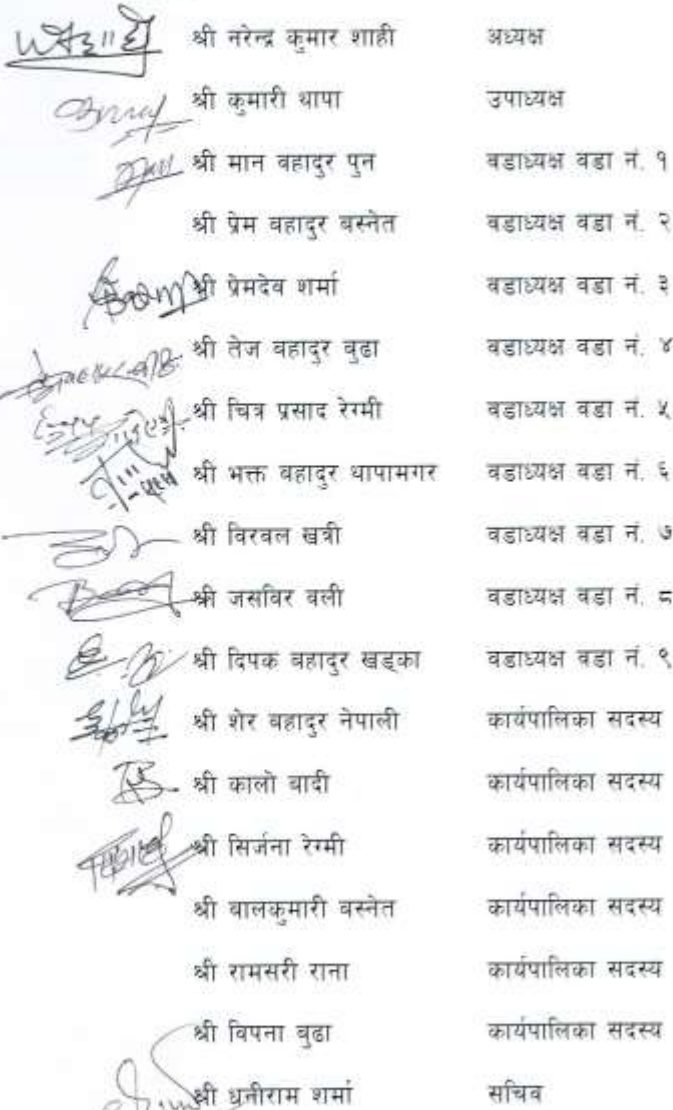 श्री नरेन्द्र कुमार शाही अध्यक्ष
श्री कुमारी थापा उपाध्यक्ष
श्री मान बहादुर पुन वडाध्यक्ष वडा नं. १
श्री प्रेम बहादुर बस्नेत वडाध्यक्ष वडा नं. २
श्री प्रेमदेव शर्मा वडाध्यक्ष वडा नं. ३
श्री तेज बहादुर बुढा वडाध्यक्ष वडा नं. ४
श्री चित्र प्रसाद रेग्मी वडाध्यक्ष वडा नं. ५
श्री भक्त बहादुर थापामगर वडाध्यक्ष वडा नं. ६
श्री विरवल खत्री वडाध्यक्ष वडा नं. ७
श्री जसविर वली वडाध्यक्ष वडा नं. ८
श्री दिपक बहादुर खड्का वडाध्यक्ष वडा नं. ९
श्री शेर बहादुर नेपाली कार्यपालिका सदस्य
श्री कालो बादी कार्यपालिका सदस्य
श्री सिर्जना रेग्मी कार्यपालिका सदस्य
श्री बालकुमारी बस्नेत कार्यपालिका सदस्य
श्री रामसरी राना कार्यपालिका सदस्य
श्री विपना बुढा कार्यपालिका सदस्य
श्री धनीराम शर्मा सचिव